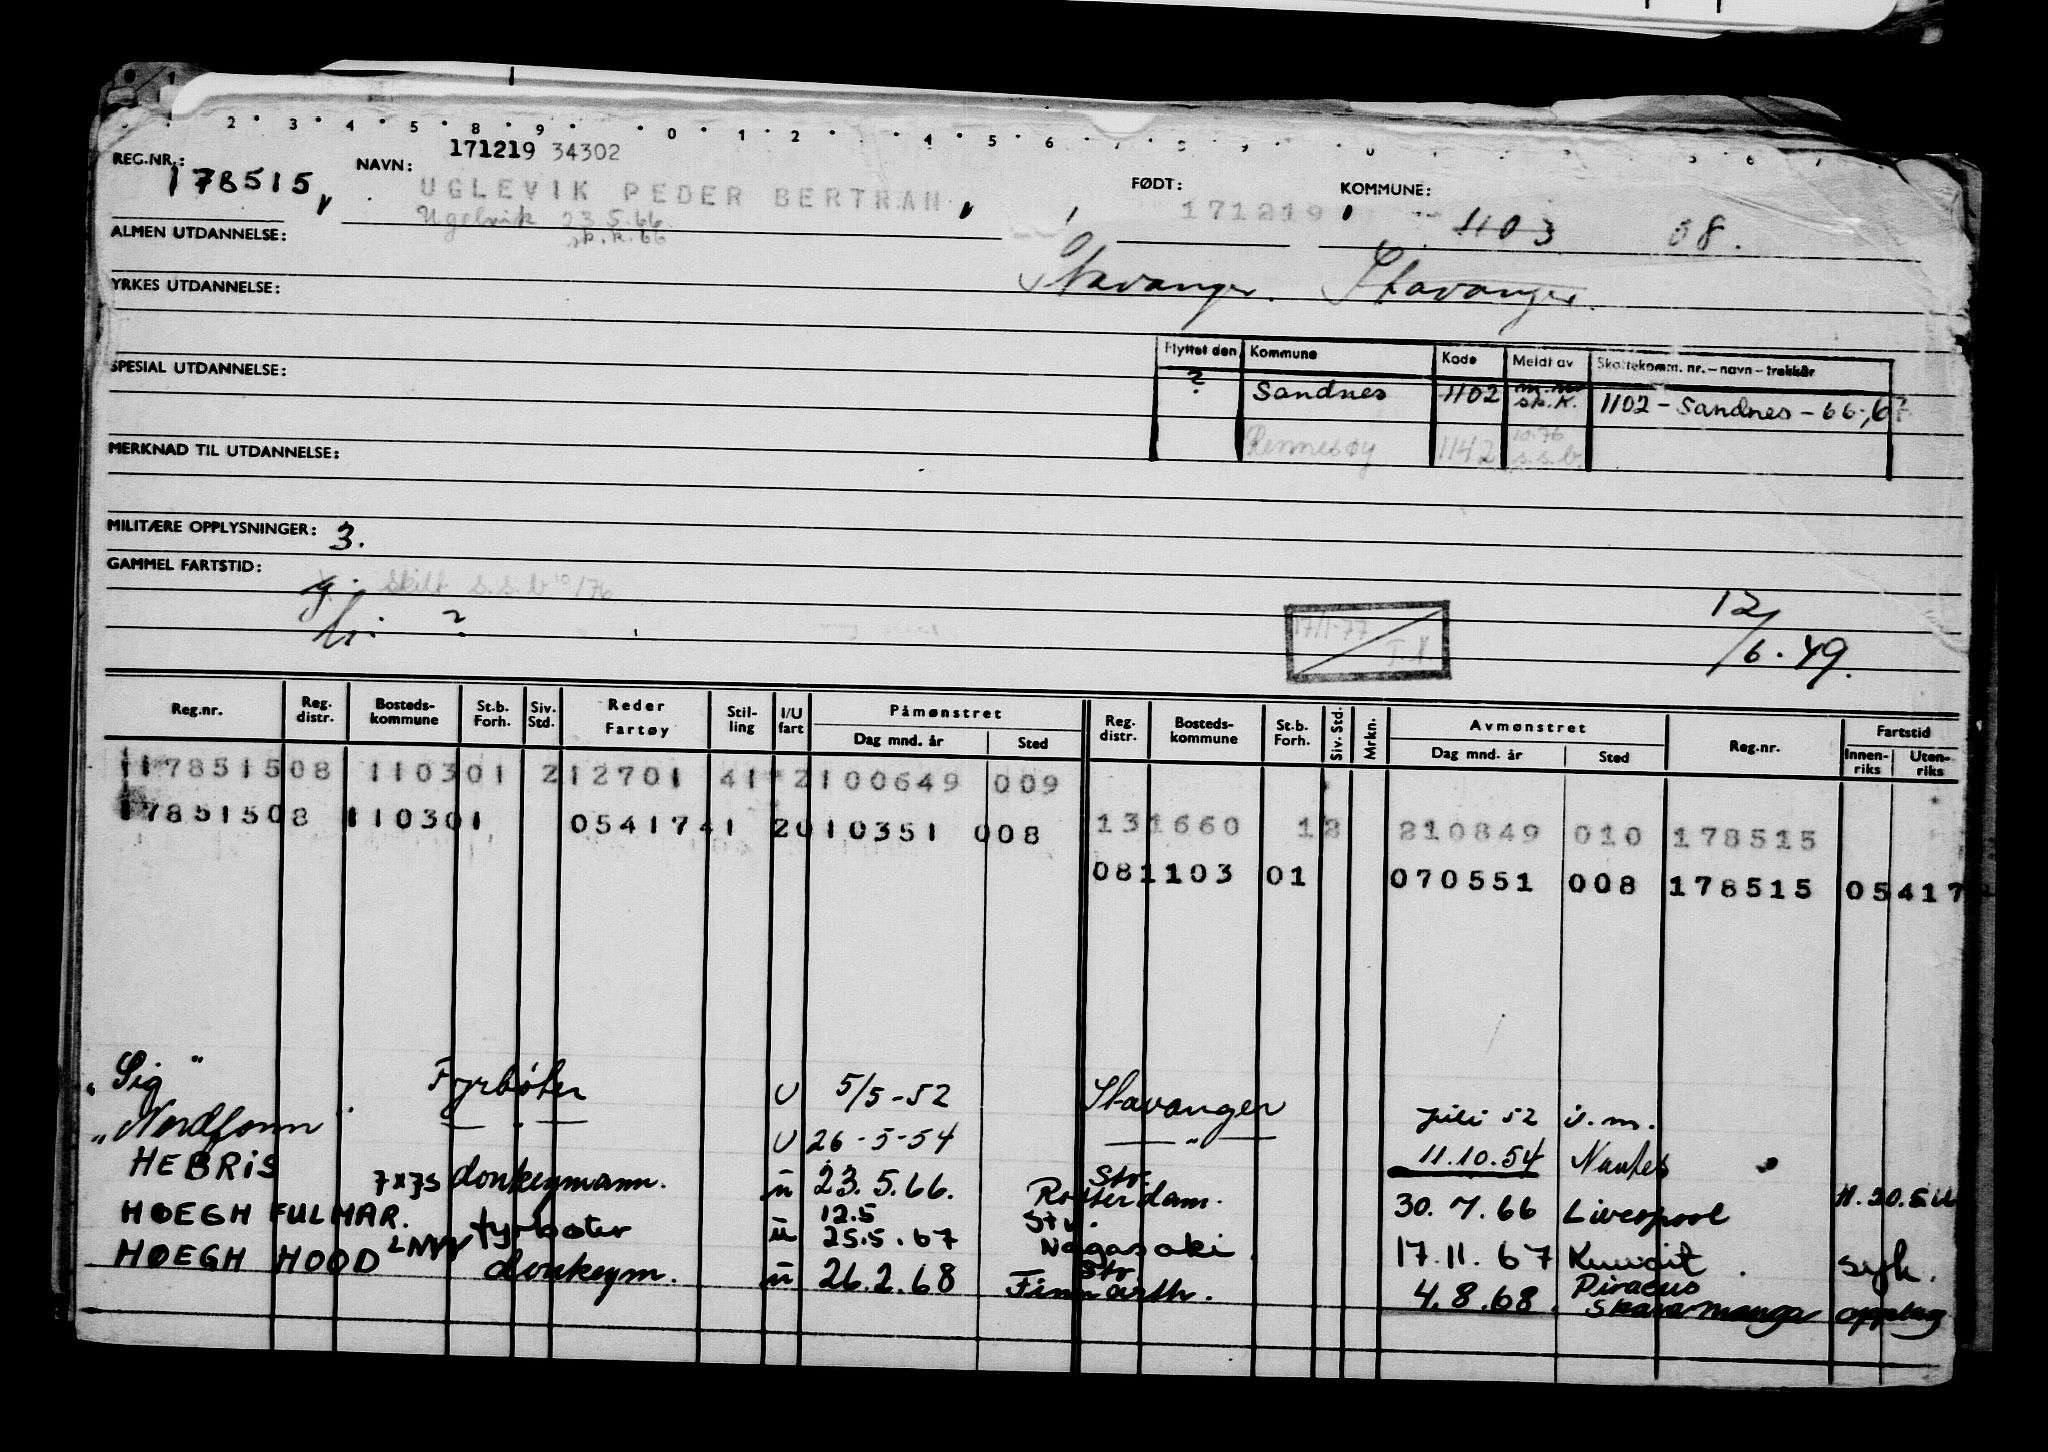 2 · 3 · 4 · 5 · 8 · 9 · · 0 · 1 · 2 · · 4 5 6
171219 34302
REG.NR.: 178515, NAVN: UGLEVIK PEDER BERTRAN FØDT: 171219 KOMMUNE: 1103 08.
Ugelvik 23.5.66
sk.k. 66
ALMEN UTDANNELSE:
Stavanger. Stavanger.
YRKES UTDANNELSE:
Flyttet den Kommune Kode Meldt av Skattekomm. nr. – navn – trekkår
SPESIAL UTDANNELSE:
? Sandnes 1102 m.m. sk.k. 1102 – Sandnes – 66,67
Rennesøy 1142 10.76 s.s.b.
MERKNAD TIL UTDANNELSE:
MILITÆRE OPPLYSNINGER: 3.
GAMMEL FARTSTID:
gj. skilt s.s.b 10/76
?
17/1-77
12/6.49.
Reg.nr. Reg. distr. Bosteds-kommune St.b. Forh. Siv. Std. Reder Fartøy Stil-ling I/U fart Påmønstret Dag mnd. år Sted Reg. distr. Bosteds-kommune St.b. Forh. Siv. Std. Mrkn. Avmønstret Dag mnd. år Sted Reg.nr. Fartstid Innen-riks Uten-riks
17851508 110301 212701 41 2100649 009
17851508 110301 0541741 2010351 008 131660 12 210849 010 178515
081103 01 070551 008 178515 05417
"Sig" Fyrbøter U 5/5-52 Stavanger juli 52 i.m.
"Nordfonn — " — U 26-5-54 — " — 11.10.54 Nantes
HEBRIS 7x7s donkeymann. u 23.5.66. Stv. Rotterdam. 30.7.66 Liverpool
HØEGH FULMAR. fyrbøter u 12.5 25.5.67 Stv. Nagasaki 17.11.67 Kuwait. syk.
HØEGH HOOD donkeym. u 26.2.68 Stv. Finnarth. 4.8.68. Piraeus Skaramanga opplag